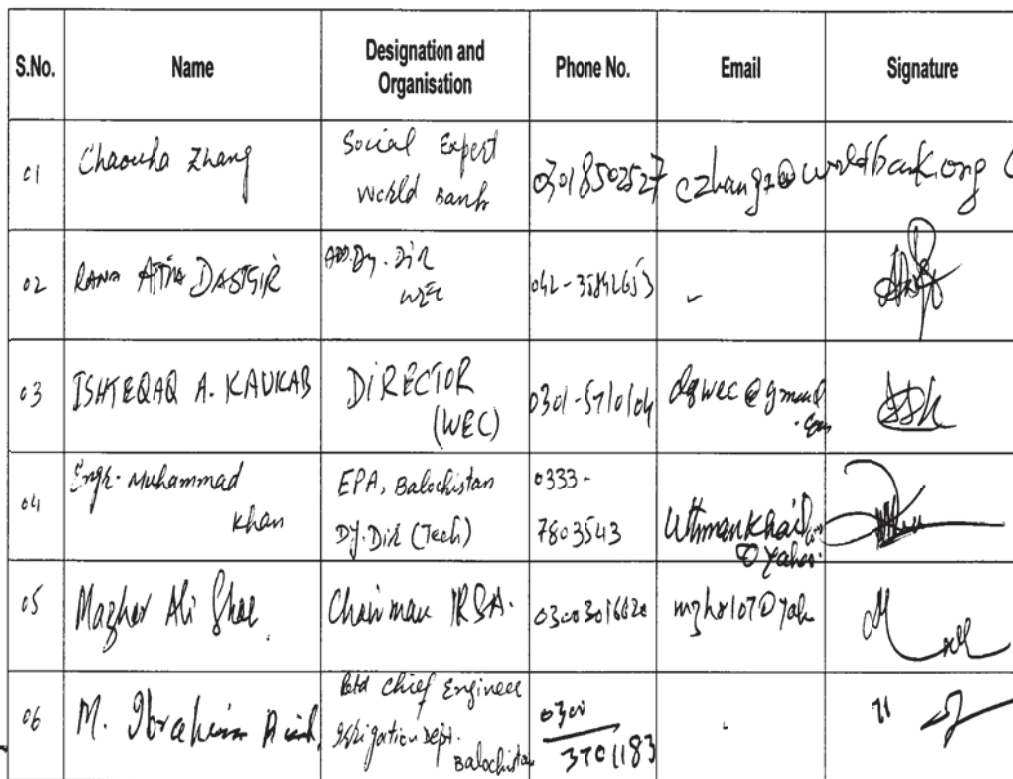 S.No. Name Designation and Organisation Phone No. Email Signature
01 Chaouha Zhang Social Expert World Bank 03018502527 czhang2@worldbank.org
02 RANA DASTGIR Dy. Dir WEC 042-35842653 -
03 ISHTEQAQ A. KAUKAB DIRECTOR (WEC) 0301-5710104 dgwec@gmail.com
04 Engr. Muhammad Khan EPA, Balochistan Dy. Dir (Tech) 0333-7803543
05 Mazhar Ali Shah Chairman IRSA. 03003016620 mzhr107@yah
06 M. Ibrahim Retd Chief Engineer Irrigation Dept. Balochistan 0300 3701183